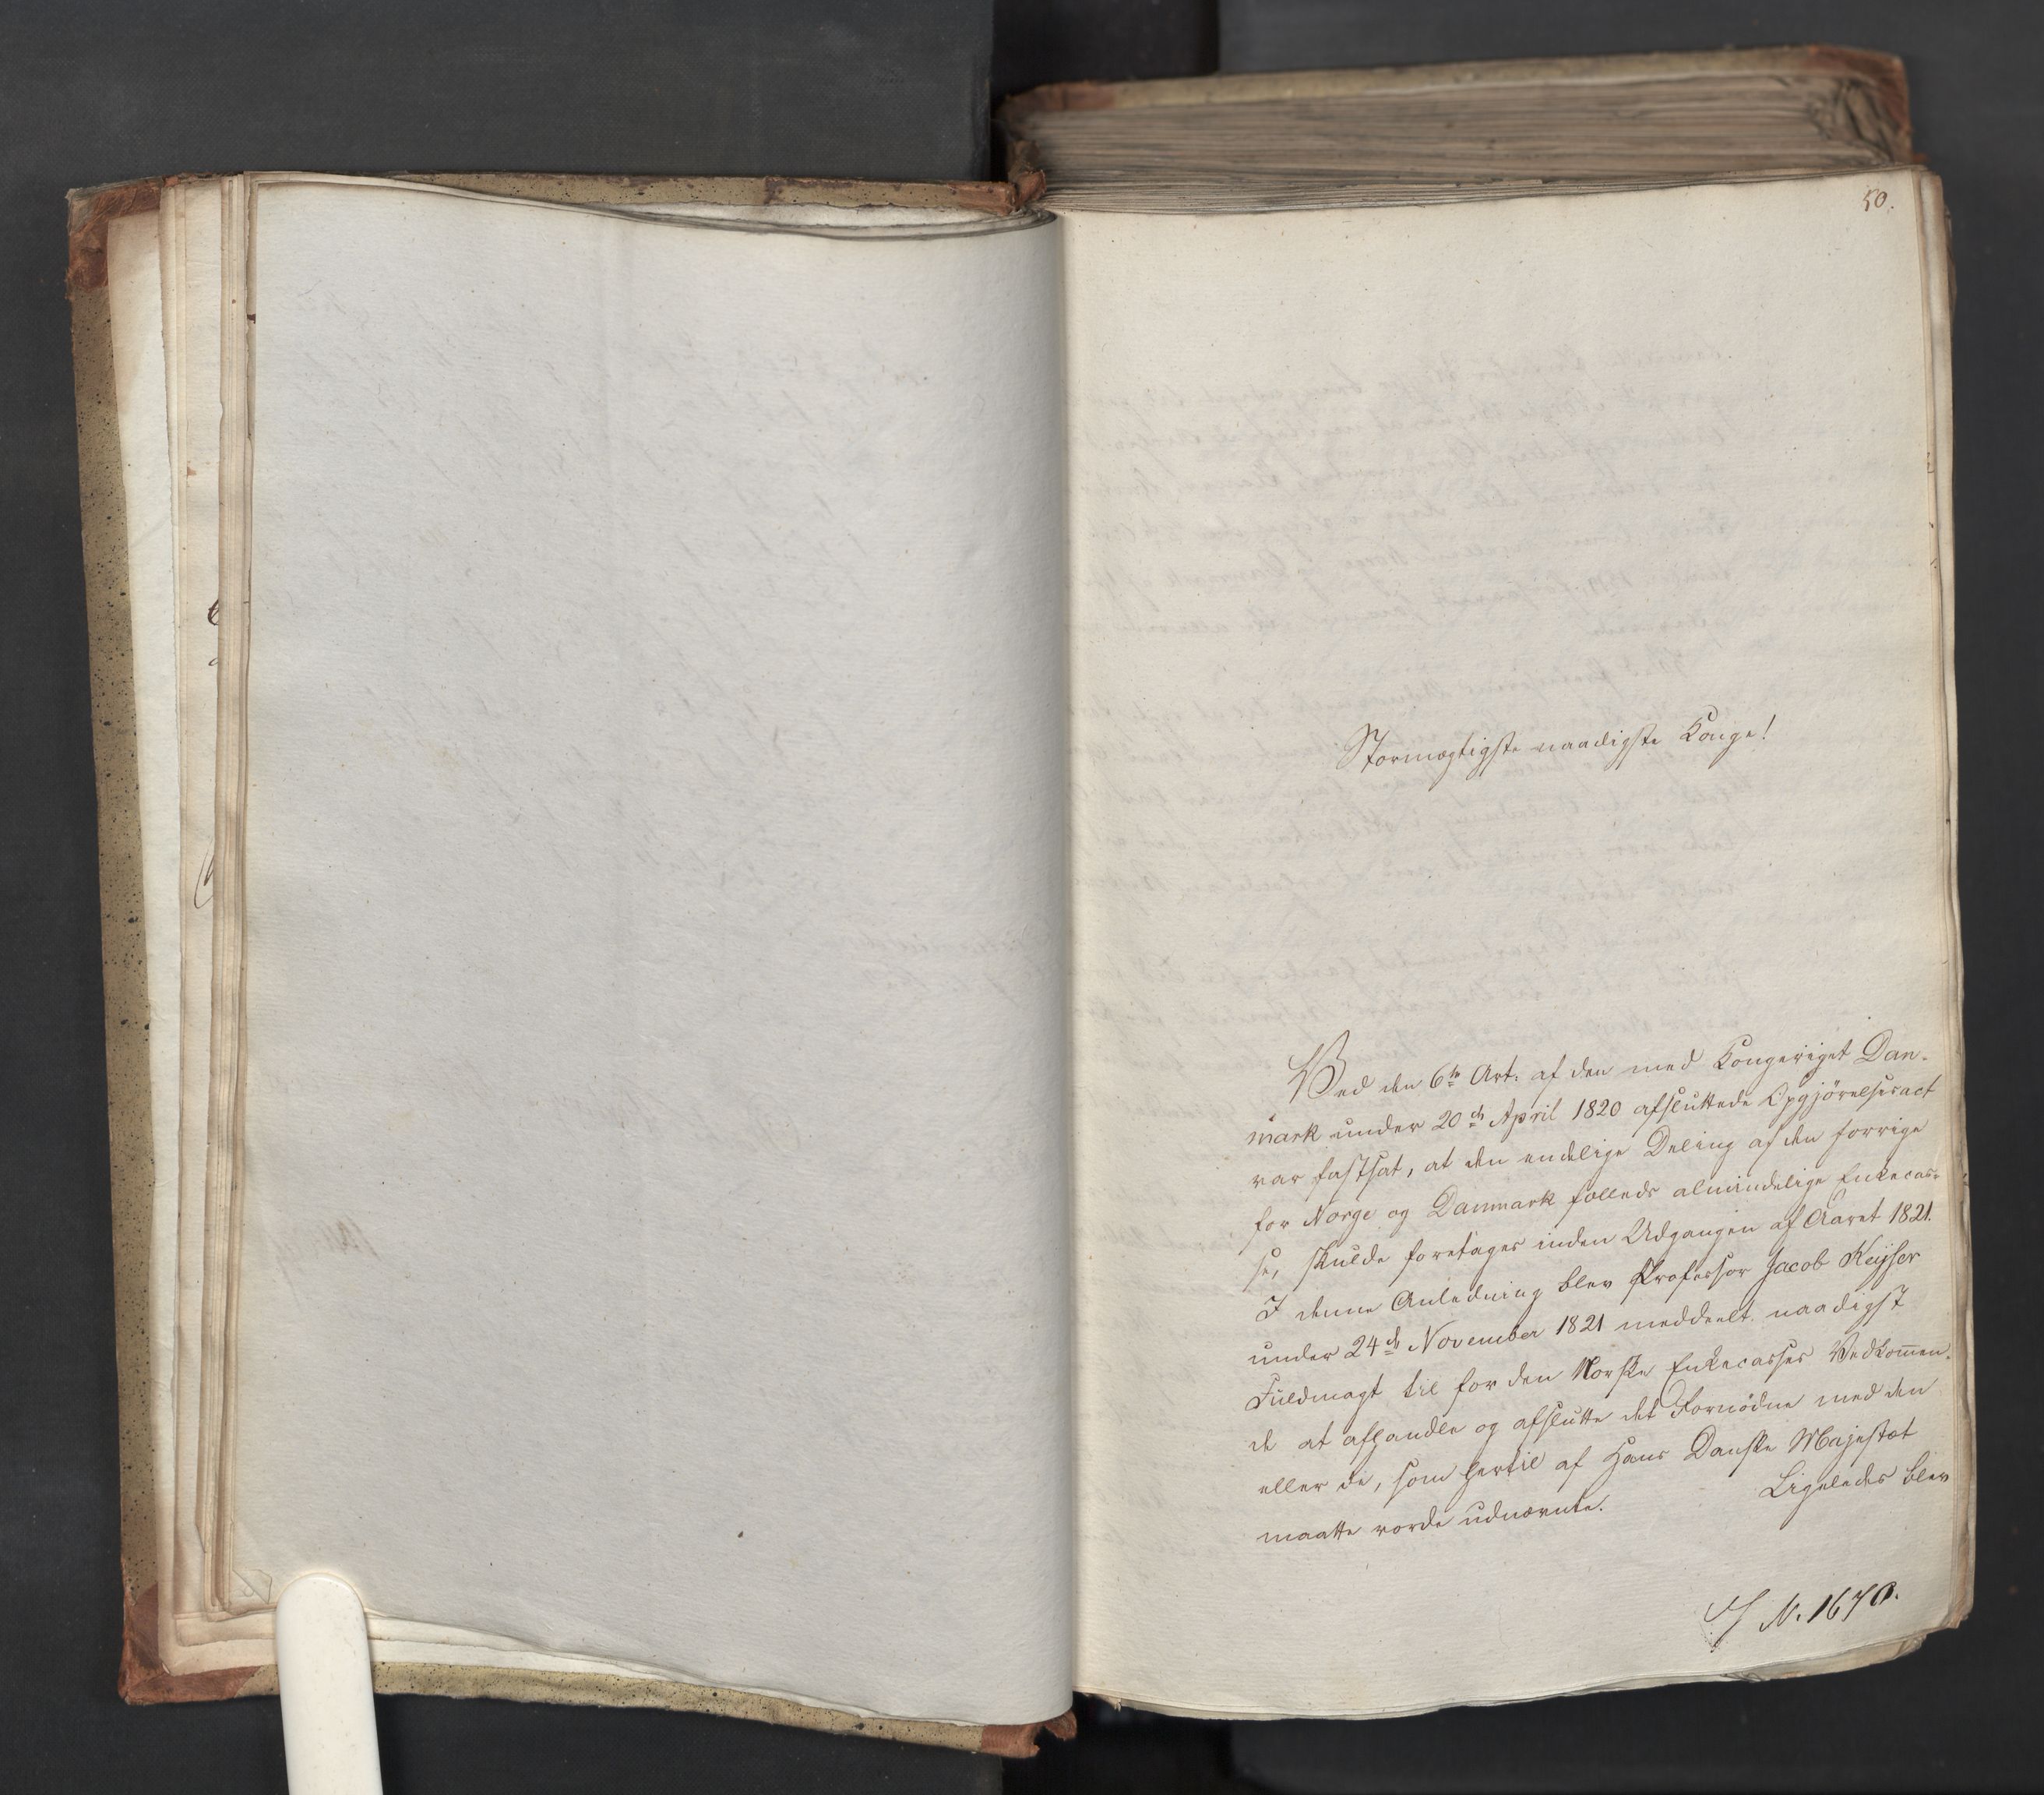 50.
Stormægtigste naadigste Konge!
Ved den 6te Art: af den med Kongeriget Dan-
mark under 20de April 1820 afsluttede Opgjörelsesact
var fastsat, at den endelige Deling af den forrige
for Norge og Danmark fælleds almindelige Enkecas-
se, skulde foretages inden Udgangen af Aaret 1821.
I denne Anledning blev Professor Jacob Keyser
under 24de November 1821 meddeelt naadigst
Fuldmagt til for den Norske Enkecasses Vedkommen-
de at afhandle og afslutte det Fornödne med den
eller de, som hertil af Hans Danske Majestæt
maatte vorde udnævnte. Ligeledes blev
N. 1670.